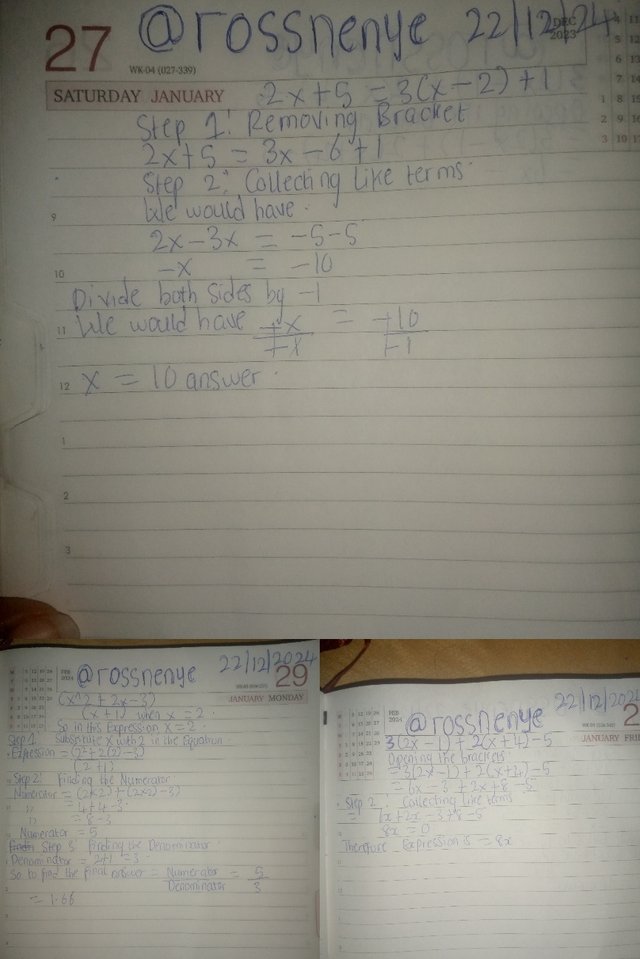 27 @rossnenye 22/12/24
DEC
2023
WK-04 (027-339)
SATURDAY JANUARY 2x+5 = 3(x-2)+1
Step 1: Removing Bracket
2x+5 = 3x-6+1
Step 2: Collecting Like terms.
9 We would have.
2x-3x = -5-5
10 -x = -10
Divide both sides by -1
11 We would have -x = -10
-1
12 x = 10 answer.
1
2
3
FEB
2024
@rossnenye 22/12/2024
29
JANUARY MONDAY
(x^2 + 2x-3)
(x+1) when x = 2
So in this Expression x = 2.
Step 1 Substitute x with 2 in the Equation
Expression = (2²+2(2)-3)
(2+1)
Step 2: Finding the Numerator
Numerator = (2x2)+(2x2)-3)
" = 4+4-3
" = 8-3
Numerator = 5
Step 3 Finding the Denominator
Denominator = 2+1 = 3
So to find the final answer = Numerator = 5
Denominator 3
= 1.66
FEB
2024
22/12/2024
@rossnenye
JANUARY FRI
3(2x-1)+2(x+4)-5
Opening the brackets
= 3(2x-1)+2(x+4)-5
= 6x-3+2x+8-5
Step 2: Collecting like terms
= 6x+2x-3+8-5
8x = 0
Therefore Expression is = 8x